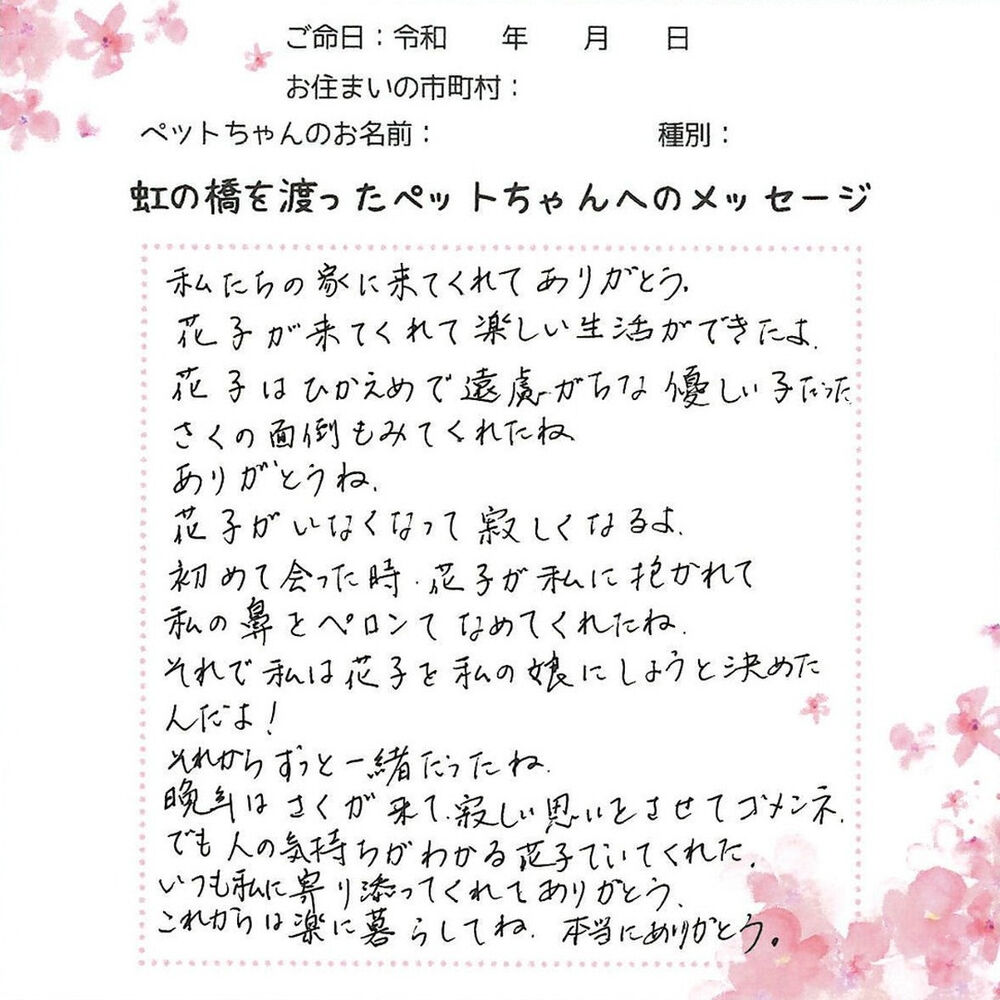 ご命日：令和　　年　　月　　日
お住まいの市町村：
ペットちゃんのお名前：　　　　　　　　種別：
虹の橋を渡ったペットちゃんへのメッセージ
私たちの家に来てくれてありがとう。
花子が来てくれて楽しい生活ができたよ.
花子はひかえめで遠慮がちな優しい子だった
さくの面倒もみてくれたね
ありがとうね.
花子がいなくなって寂しくなるよ.
初めて会った時.花子が私に抱かれて
私の鼻をペロンてなめてくれたね.
それで私は花子を私の娘にしようと決めた
んだよ！
それからずっと一緒だったね.
晩年はさくが来て.寂しい思いをさせてゴメンネ.
でも人の気持ちがわかる花子でいてくれた.
いつも私に寄り添ってくれてありがとう.
これからは楽に暮らしてね.本当にありがとう。